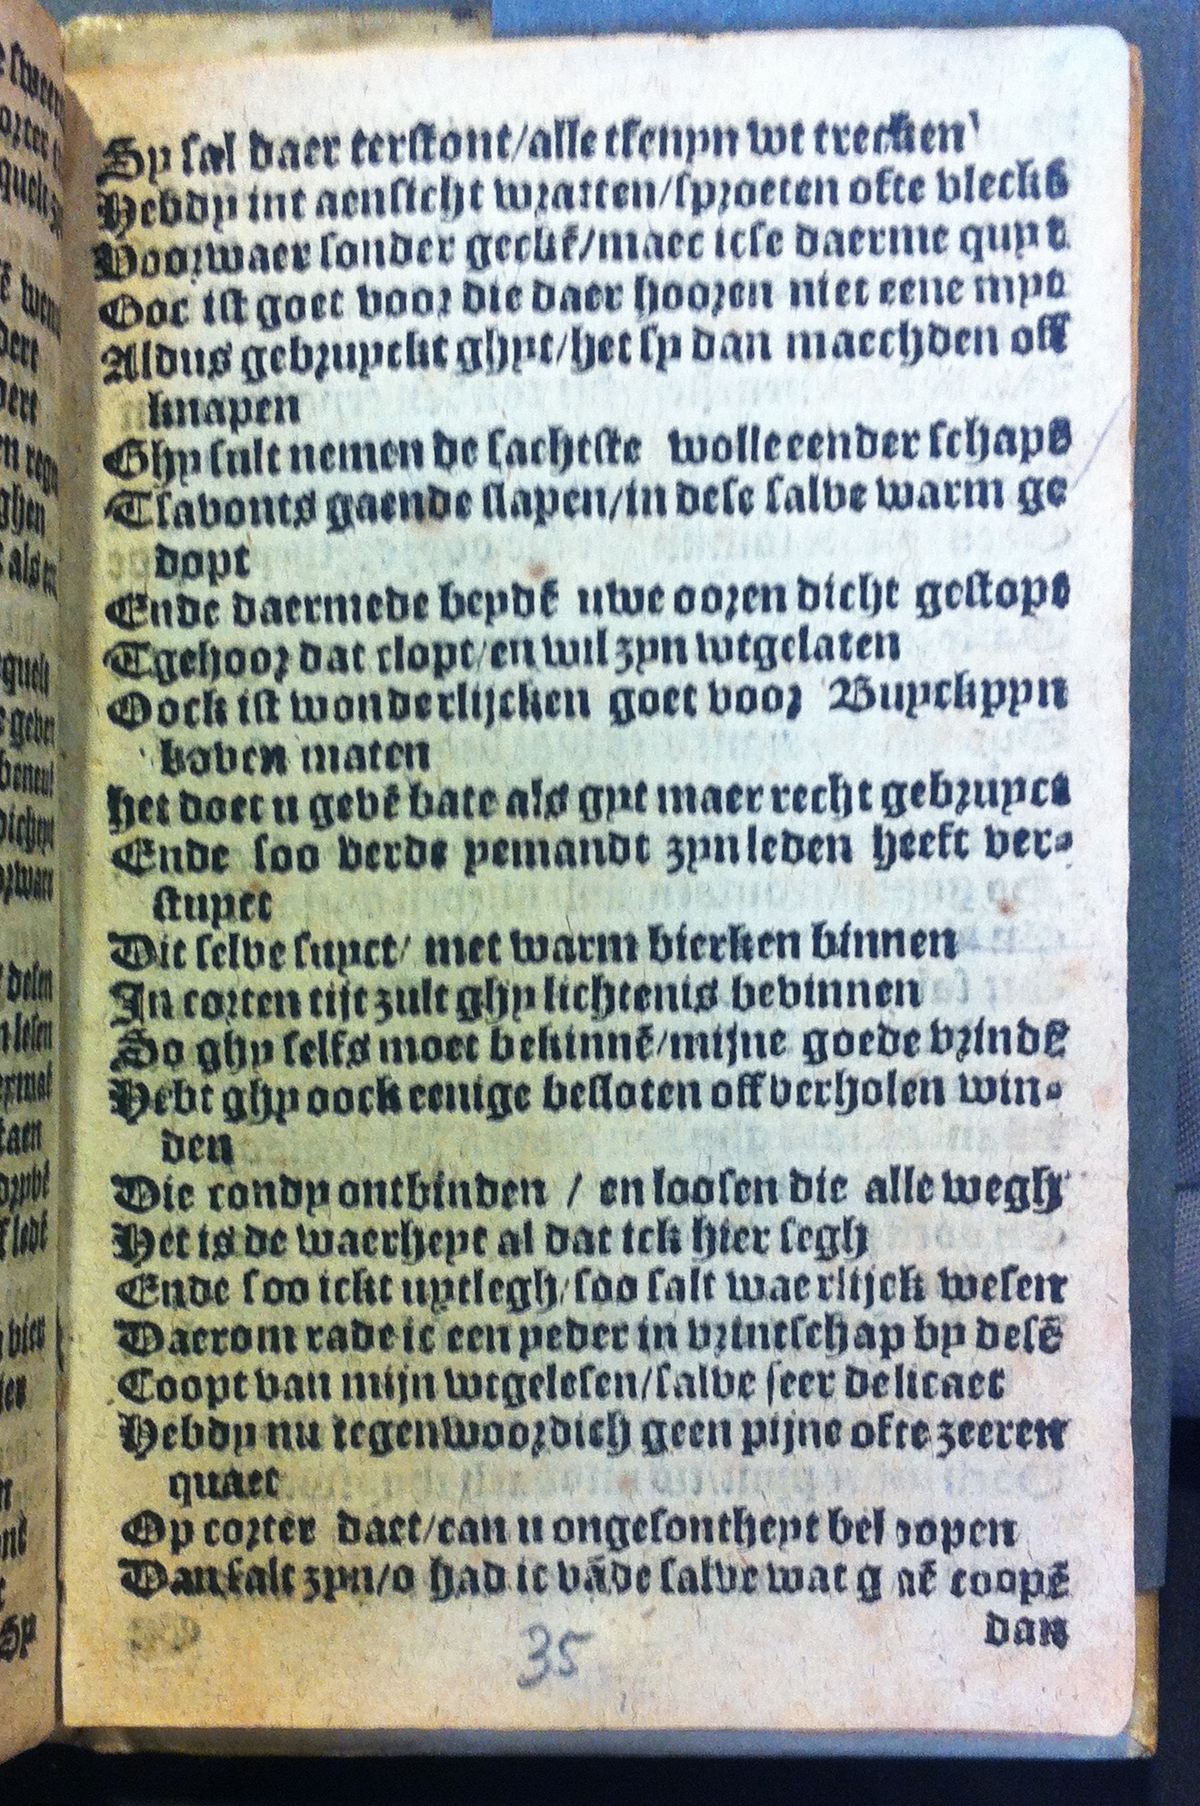 Sy sal daer terstont/alle tfenyn wt trecken
Hebdy int aensicht wratten/sproeten ofte vleckē
Voorwaer sonder geckē/maec icse daerme quyt
Ooc ist goet voor die daer hooren niet eene myt
Aldus gebruyckt ghyt/het sy dan maechden off
knapen
Ghy sult nemen de sachtste wolle eender schape
Tsavonts gaende slapen/in dese salve warm ge
dopt
Ende daermede beydē uwe ooren dicht gestopt
Tgehoor dat clopt/en wil zyn wtgelaten
Oock ist wonderlijcken goet voor Buyckpyn
boven maten
Het doet u gevē bate als gyt maer recht gebruyct
Ende soo verde yemandt zyn leden heeft ver-
stuyct
Dit selve suyct/ met warm bierken binnen
In corten tijt zult ghy lichtenis bevinnen
So ghy selfs moet bekinnē/mijne goede vrindē
Hebt ghy oock eenige besloten off verholen win-
den
Die condy ontbinden / en loosen die alle wegh
Het is de waerheyt al dat ick hier segh
Ende soo ickt uytlegh/soo salt waerlijck wesen
Daerom rade ic een yeder in vrintschap by desē
Coopt van mijn wtgelesen/salve seer delicaet
Hebdy nu tegenwoordich geen pijne ofte zeeren
quaet
Op corter daet/can u ongesontheyt beloopen
Dan salt zyn/o had ic vāde salve wat gaē coopē
dan
35